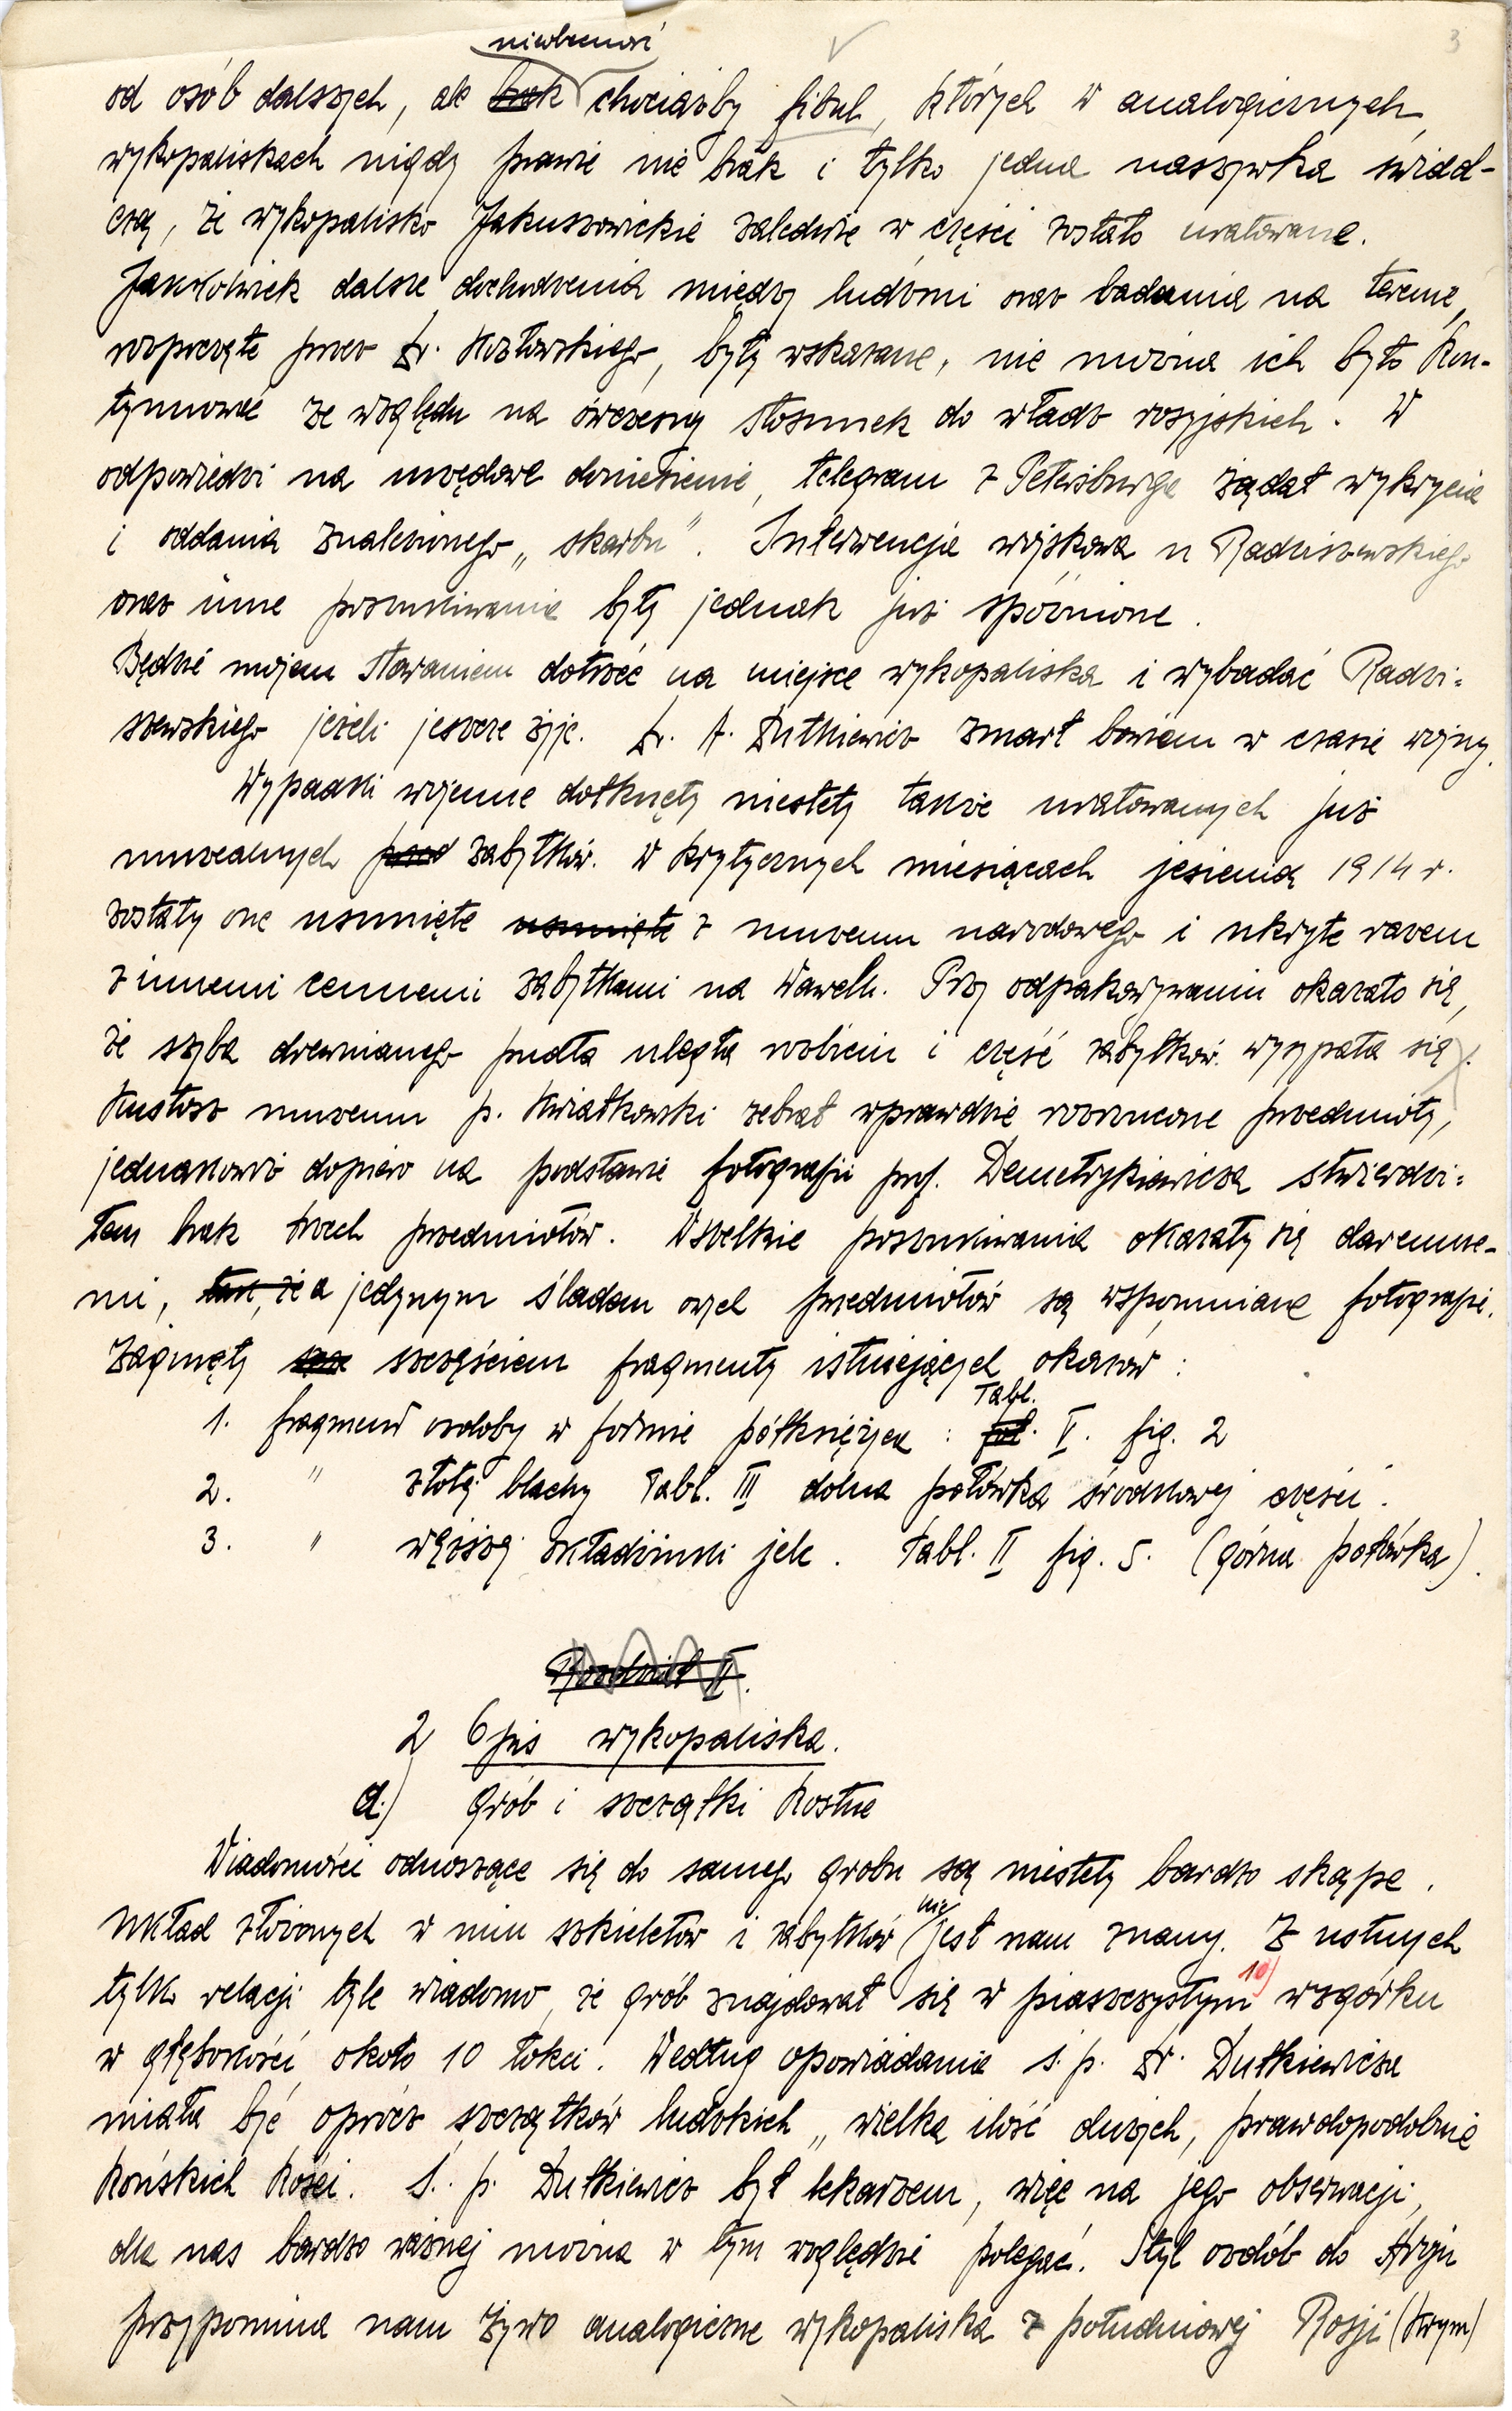 3
nieobecność
od osób dalszych, ale brak chociażby fibul, których w analogicznych
wykopaliskach nigdy prawie nie brak i tylko jedna naszywka świad-
czą, że wykopalisko Jakuszowickie zaledwie w części zostało uratowane.
Jakkolwiek dalsze dochodzenia między ludźmi oraz badania na terenie,
rozpoczęte przez Dr. Kozłowskiego, były wskazane, nie można ich było kon-
tynuować ze względu na ówczesny stosunek do władz rosyjskich. W
odpowiedzi na urzędowe doniesienie, telegram z Petersburga żądał wykrycia
i oddania znalezionego „skarbu". Interwencja wojskowa u Radziszewskiego
oraz inne poszukiwania były jednak już spóźnione.
Będzie mojem staraniem dotrzeć na miejsce wykopaliska i wybadać Radzi-
szewskiego jeżeli jeszcze żyje. Dr. A. Dutkiewicz zmarł bowiem w czasie wojny.
Wypadki wojenne dotknęły niestety także uratowanych już
muzealnych przed zabytków. W krytycznych miesiącach jesienią 1914 r.
zostały one usunięte usunięte z muzeum narodowego i ukryte razem
z innemi cennemi zabytkami na Wawelu. Przy odpakowywaniu okazało się,
że szyba drewnianego pudła uległa rozbiciu i część zabytków wysypała się.
Kustosz muzeum p. Kwiatkowski zebrał wprawdzie rozrzucone przedmioty,
jednakowoż dopiero na podstawie fotografii prof. Demetrykiewicza stwierdzi-
łem brak trzech przedmiotów. Wszelkie poszukiwania okazały się daremne-
mi, tak, że a jedynym śladem owych przedmiotów są wspomniane fotografie.
Zaginęły szczęściem fragmenty istniejących okazów:
Tabl.
1. fragment ozdoby w formie półksiężyca : V. fig. 2
2. " złotej blachy Tabl. III dolna połówka środkowej części.
3. " węższej okładzinki jelc. Tabl. II fig. 5. (górna połówka).
Rozdział II.
2 Opis wykopaliska.
a.) Grób i szczątki kostne
Wiadomości odnoszące się do samego grobu są niestety bardzo skąpe.
nie
Układ złożonych w nim szkieletów i zabytków jest nam znany. Z ustnych
tylko relacji tyle wiadomo, że grób znajdował się w piaszczystym 10) wzgórku
w głębokości około 10 łokci. Według opowiadania ś. p. Dr. Dutkiewicza
miała być oprócz szczątków ludzkich „wielka ilość dużych, prawdopodobnie
końskich kości. Ś. p. Dutkiewicz był lekarzem, więc na jego obserwacji,
dla nas bardzo ważnej można w tym względzie polegać. Styl ozdób do stroju
przypomina nam żywo analogiczne wykopaliska z południowej Rosji (Krym)